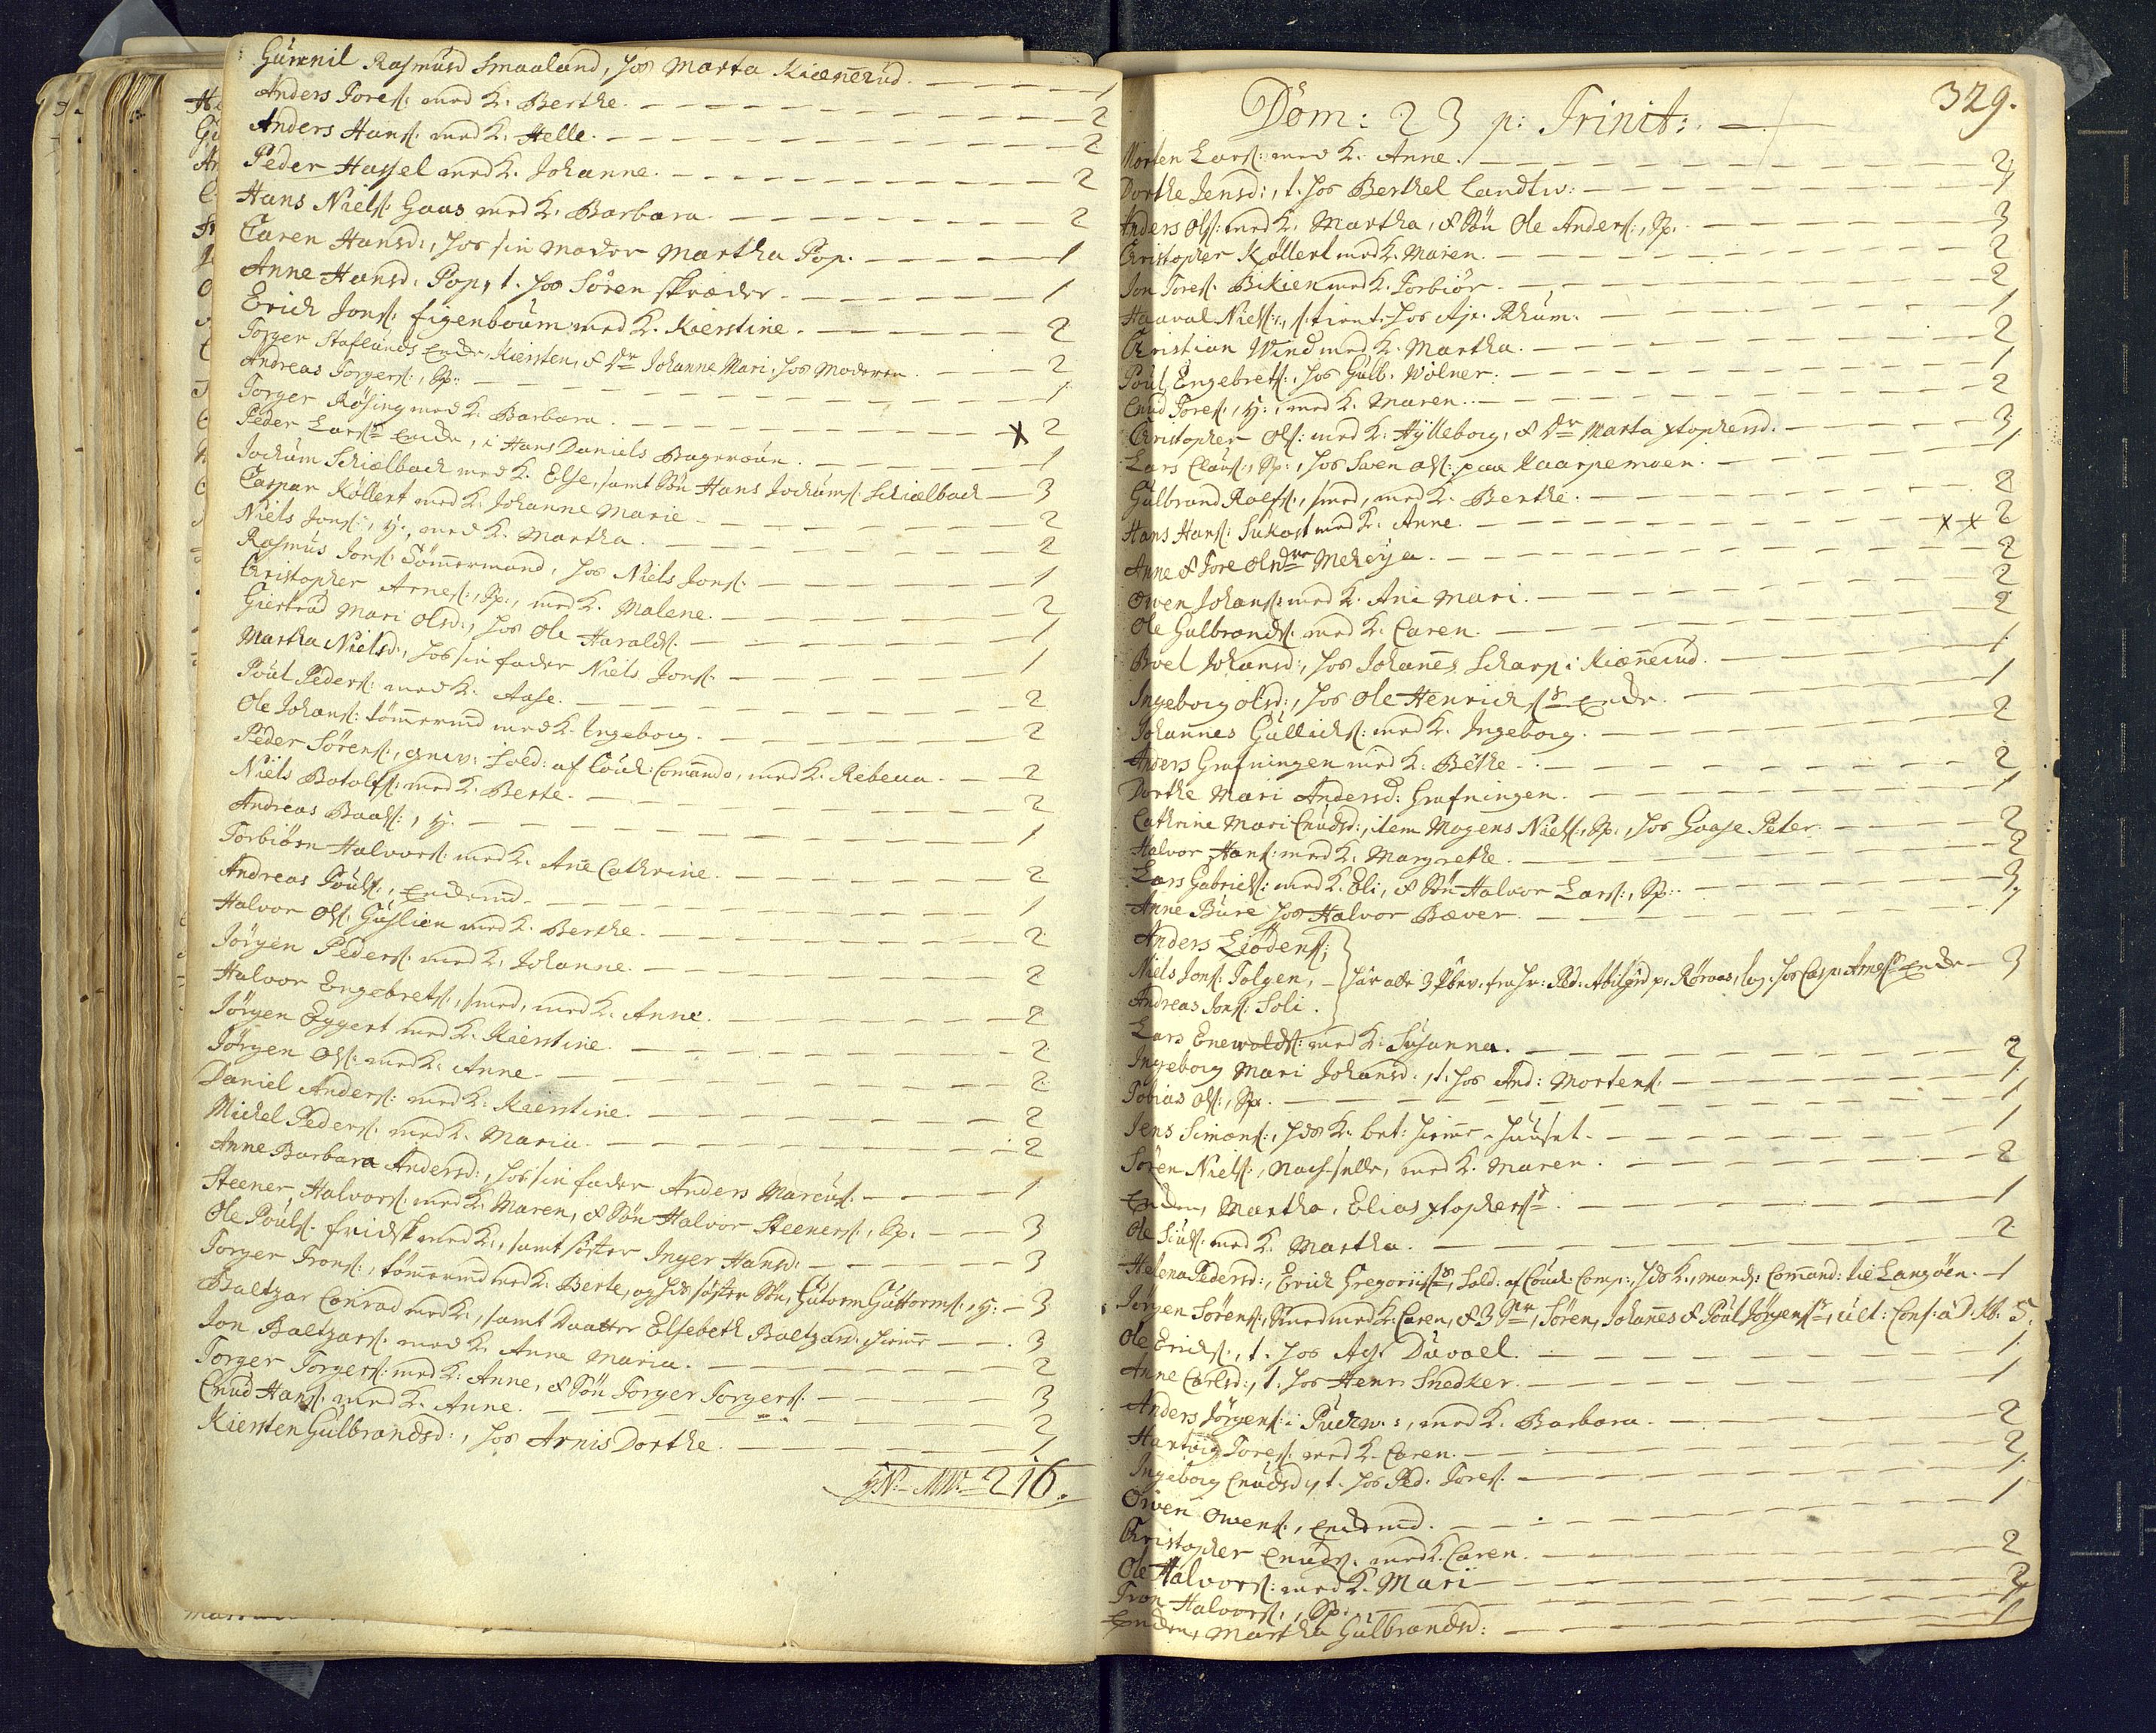 Gunnil Rasmusd Smaaland, hos Marta Kiennerud. 1
Anders Tores: med K. Berthe. 2
Anders Hans: med K. Helle. 2
Peder Hassel med K. Johanne. 2
Hans Niels: Gaas med K. Barbara. 2
Caren Hansd:, hos sin Moder Martha Pop. 1
Anne Hansd: Pop, t. hos Sören skræder. 1
Erich Jons: Eigenboum med K. Kierstine. 2
Torger Staflunds Encke, Kiersten, & Dr Johanne Mari, hos Moderen. 2
Andreas Torgers:, Sp: 1
Torger Rösing med K. Barbara. 2
Peder Larss Encke, i Hans Daniels Bagerstue. x 1
Jochum Schielbach med K. Else, samt Sön Hans Jochums: Schielbach 3
Caspar Köllert med K. Johanne Marie 2
Niels Jons:, y., med K. Martha. 2
Rasmus Jons: Tömmermand, hos Niels Jons: 1
Christopher Arnes:, Sp:, med K. Malene. 2
Giertrud Mari Olsd:, hos Ole Haralds: 1
Martha Nielsd:, hos sin fader Niels Jons: 1
Poul Peders: med K. Aase. 2
Ole Johans: tömmermd med K. Ingeborg. 2
Peder Sörens:, gew: Sold: af Couch: Comando, med K. Rebecca. 2
Niels Botolfs: med K. Berte. 2
Andreas Baals:, y. 1
Torbiörn Halvors: med K. Ane Cathrine. 2
Andreas Pouls:, Enckemd. 1
Halvor Ols: Guslien med K. Berthe. 2
Jörgen Peders: med K. Johanne. 2
Halvor Engebrets:, smed, med K. Anne. 2
Jörgen Eggert med K. Kierstine. 2
Jörgen Ols: med K. Anne. 2
Daniel Anders: med K. Kierstine. 2
Michel Peders: med K. Maria. 2
Anne Barbara Andersd:, hos sin fader Anders Marcus: 1
Steener Halvors: med K. Maren, & Sön Halvor Steeners:, Sp. 3
Ole Pouls: fridsk med K., samt söster Inger Hansd: 3
Torger Trons:, tömmermd med K. Berte, og hds söster Sön, Gutorm Guttorms:, y: 3
Baltzar Conrad med K., samt Daatter Elsebeth Baltzard: hieme 3
Jon Baltzars: med K. Anne Maria. 2
Torger Torgers: med K. Anne, & Sön Torger Torgers: 3
Cnud Hans: med K. Anne. 2
Kiersten Gulbrandsd:, hos Arnis Dorthe. 1
216.
329.
Dom: 23 p: Trinit:
Morten Lars: med K. Anne. 2
Dorthe Jensd:, t. hos Berthel Landtw: 1
Anders Ols: med K. Martha, & Sön Ole Anders:, Sp. 3
Christopher Köllert med K. Maren. 2
Jon Tores: Bikien med K. Torbiör. 2
Haaval Niels:, s. tient. hos Aje Rhum. 1
Christian Wind med K. Martha. 2
Poul Engebrets:, hos Gulb. Wölner. 1
Cnud Tores:, y:, med K. Maren. 2
Christopher Ols: med K. Hylleborg, & Dr Marta xtophersd. 3
Lars Claus:, Sp:, hos Swen Ols: paa Kaarpemoen. 1
Gulbrand Roalfs:, smed, med K. Berthe. 2
Hans Hans: Sukast med K. Anne. x x 2
Anne & Tore Oldr Mehøya. 2
Owen Johans: med K. Ane Mari. 2
Ole Gulbrands: med K. Caren. 2
Boel Johansd:, hos Johannes Scharp i Kiennerud. 1
Ingeborg Olsd:, hos Ole Henrichs Encke. 1
Johannes Gullichs: med K. Ingeborg. 2
Anders Grafningen med K. Bethe. 2
Dorthe Mari Andersd: Grafningen. 1
Cathrine Mari Cnudsd:, item Mogens Niels:, Sp:, hos Gaase Peter. 2
Halvor Hans: med K. Margrethe. 2
Lars Gabriels: med K. Eli, & Sön Halvor Lars:, Sp: 3
Anne Bure hos Halvor Bæver. 1
Anders Liödens:
Niels Jons: Tolgen, har alle 3 fra Hr: Ped: Abilgrd p. Röraas, log. hos Casp: Arnes Encke 3
Andreas Jons: Soli.
Lars Enewolds: med K. Susanna. 2
Ingeborg Mari Johansd:, t. hos And: Mortens: 1
Tobias Ols:, Sp. 1
Jens Simens:, hds K. bet: hieme i huuset. 1
Sören Niels:, med K. Maren. 2
Encken, Martha, Elias xtophers. 1
Ole Siuls: med K. Martha. 2
Helena Pedersd:, Erich Gregoriis, Sold: af Couch: Comp:, hds K., mand: Comand: til Langöen. 1
Jörgen Sörens:, Smed med K. Caren, & 3 Sr, Sören, Johanes & Poul Jörgens, ult: Conf: 5
Ole Erichs:, t. hos Ags Duvael. 1
Anne Carlsd:, t. hos Henr: Snedker. 1
Anders Jörgens: i Puckw:, med K. Barbara. 2
Hartvig Tores: med K. Caren. 2
Ingeborg Cnudsd, t. hos Ped: Tores: 1
Owen Owens:, Enckemd. 1
Christopher Cnuds: med K. Caren. 2
Ole Halvors: med K. Mari 2
Tron Halvors:, Sp: 1
Encken, Martha Gulbrandsd: 1